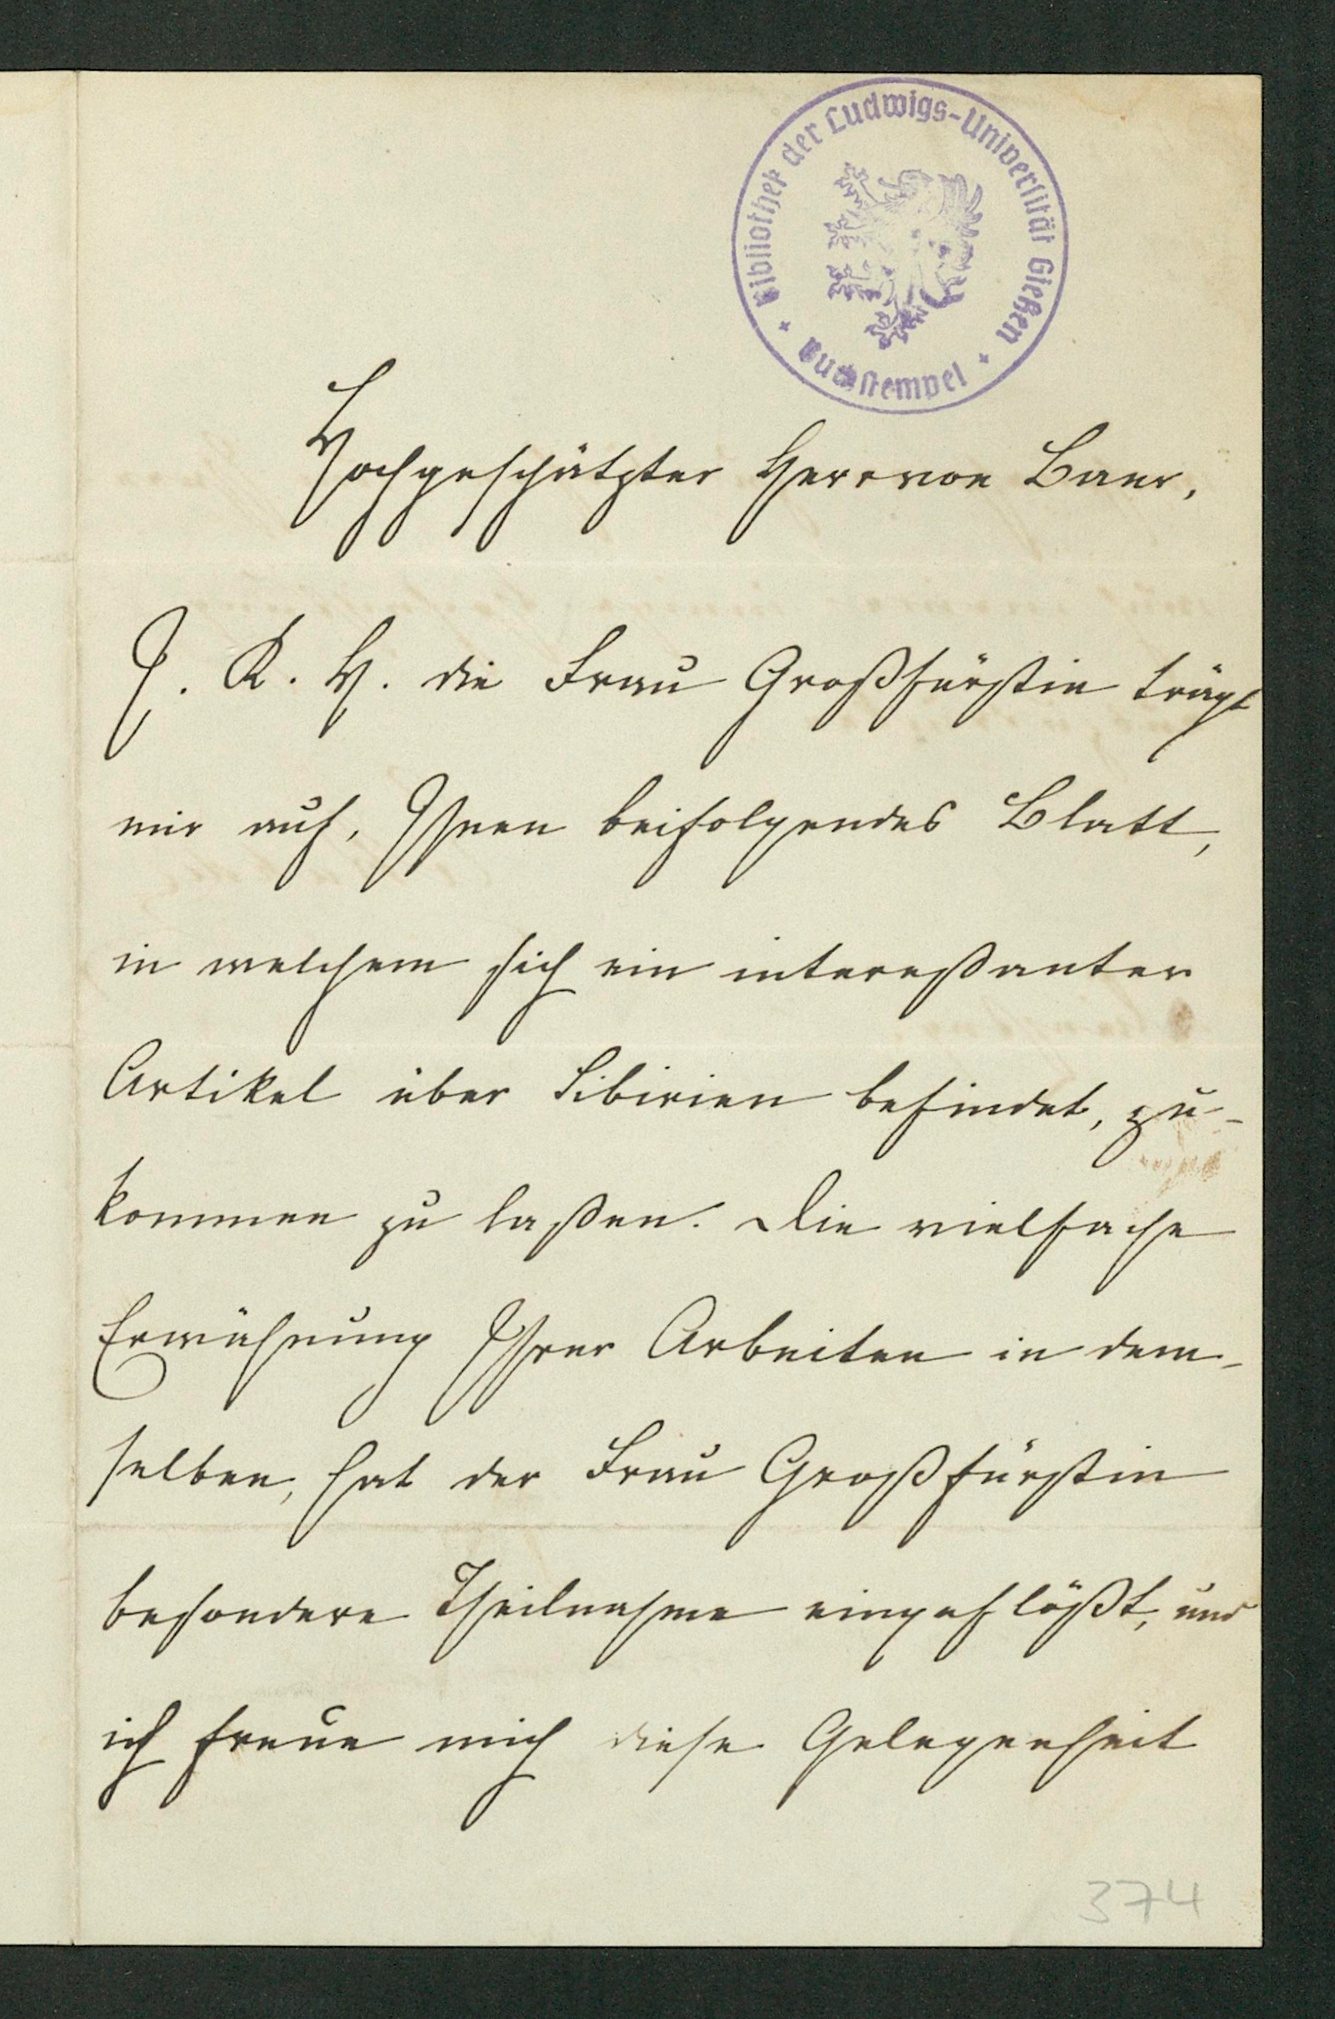 Bibliothek der Ludwigs-Universität Gießen
Buchstempel
Hochgeschätzter Herr von Baer,
I. K. H. die Frau Großfürstin trägt
mir auf, Ihnen beifolgendes Blatt,
in welchem sich ein intereßanter
Artikel über Sibirien befindet, zu-
kommen zu laßen. Die vielfache
Erwähnung Ihrer Arbeiten in dem-
selben, hat der Frau Großfürstin
besondere Theilnahme eingeflößt, und
ich freue mich diese Gelegenheit
374